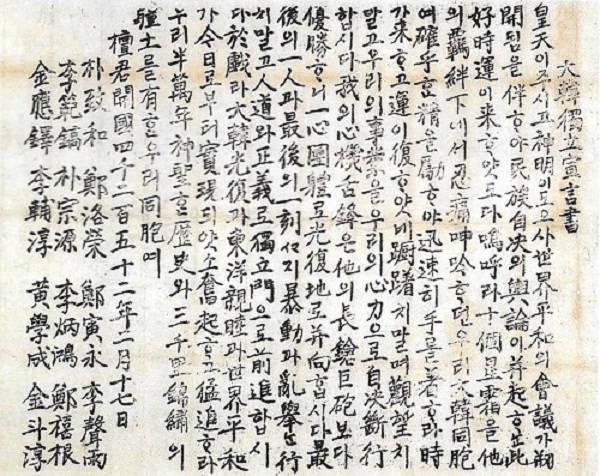 大韓獨立宣言書
皇天이주시고神明이도으사世界平和의會議가初
開됨을伴ᄒᆞ야民族自決의輿論이并起ᄒᆞᄂᆞᆫ此
好時運이來ᄒᆞ얏도다嗚呼라十個星霜을他
의羈絆下에서忍痛呻吟ᄒᆞ던우리大韓同胞
여確乎ᄒᆞᆫ精을勵ᄒᆞ야迅速히手를著ᄒᆞ라時
가來ᄒᆞ고運이復ᄒᆞ얏네躕躇치말며觀望치
말고우리의事業을우리의心力으로自決斷行
합시다我의心機舌鋒은他의長鎗巨砲보다
優勝ᄒᆞ니一心團體로光復地로并向합시다最
後의一人과最後의一刻ᄭᆞ지暴動과亂擧는行
치말고人道와正義로獨立門으로前進합시
다於戲라大韓光復과東洋親睦과世界平和
가今日로부터實現되얏소奮起ᄒᆞ고猛進ᄒᆞ라
우리半萬年神聖ᄒᆞᆫ歷史와三千里錦繡의
疆土를有ᄒᆞᆫ우리同胞여
檀君開國四千二百五十二年二月十七日
朴致和 鄭洛榮 鄭寅永 李聲雨
李範鎬 朴宗源 李炳鴻 鄭禧根
金應鐸 李輔淳 黃學成 金斗淳